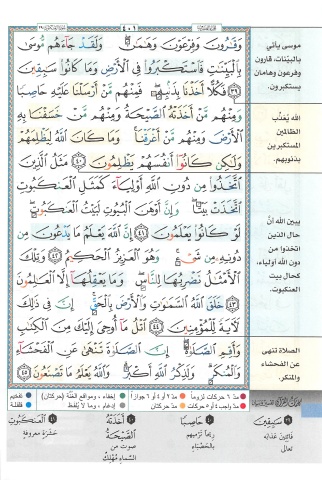 وَقَٰرُونَ وَفِرْعَوْنَ وَهَٰمَٰنَ ۖ وَلَقَدْ جَآءَهُم مُّوسَىٰ
بِٱلْبَيِّنَٰتِ فَٱسْتَكْبَرُوا۟ فِى ٱلْأَرْضِ وَمَا كَانُوا۟ سَٰبِقِينَ
٣٩ فَكُلًّا أَخَذْنَا بِذَنۢبِهِۦ ۖ فَمِنْهُم مَّنْ أَرْسَلْنَا عَلَيْهِ حَاصِبًا
وَمِنْهُم مَّنْ أَخَذَتْهُ ٱلصَّيْحَةُ وَمِنْهُم مَّنْ خَسَفْنَا بِهِ
ٱلْأَرْضَ وَمِنْهُم مَّنْ أَغْرَقْنَا ۚ وَمَا كَانَ ٱللَّهُ لِيَظْلِمَهُمْ
وَلَٰكِن كَانُوٓا۟ أَنفُسَهُمْ يَظْلِمُونَ ٤٠ مَثَلُ ٱلَّذِينَ
ٱتَّخَذُوا۟ مِن دُونِ ٱللَّهِ أَوْلِيَآءَ كَمَثَلِ ٱلْعَنكَبُوتِ
ٱتَّخَذَتْ بَيْتًا ۖ وَإِنَّ أَوْهَنَ ٱلْبُيُوتِ لَبَيْتُ ٱلْعَنكَبُوتِ ۖ
لَوْ كَانُوا۟ يَعْلَمُونَ ٤١ إِنَّ ٱللَّهَ يَعْلَمُ مَا يَدْعُونَ مِن
دُونِهِۦ مِن شَىْءٍ ۚ وَهُوَ ٱلْعَزِيزُ ٱلْحَكِيمُ ٤٢ وَتِلْكَ
ٱلْأَمْثَٰلُ نَضْرِبُهَا لِلنَّاسِ ۖ وَمَا يَعْقِلُهَآ إِلَّا ٱلْعَٰلِمُونَ
٤٣ خَلَقَ ٱللَّهُ ٱلسَّمَٰوَٰتِ وَٱلْأَرْضَ بِٱلْحَقِّ ۚ إِنَّ فِى ذَٰلِكَ
لَءَايَةً لِّلْمُؤْمِنِينَ ٤٤ ٱتْلُ مَآ أُوحِىَ إِلَيْكَ مِنَ ٱلْكِتَٰبِ
وَأَقِمِ ٱلصَّلَوٰةَ ۖ إِنَّ ٱلصَّلَوٰةَ تَنْهَىٰ عَنِ ٱلْفَحْشَآءِ
وَٱلْمُنكَرِ ۗ وَلَذِكْرُ ٱللَّهِ أَكْبَرُ ۗ وَٱللَّهُ يَعْلَمُ مَا تَصْنَعُونَ ٤٥
موسى يأتي
بالبينات، قارون
وفرعون وهامان
يستكبرون.
الله يعذب
الظالمين
المستكبرين
بذنوبهم.
يبين الله أن
حال الذين
اتخذوا من
دون الله أولياء،
كحال بيت
العنكبوت.
الصلاة تنهى
عن الفحشاء
والمنكر.
مدّ ٦ حركات لزوماً
مدّ ٢ أو ٤ أو ٦ جوازاً
مدّ واجب ٤ أو ٥ حركات
مدّ حركتان
إخفاء، ومواقع الغُنَّة (حركتان)
إدغام، وما لا يُلفظ
تفخيم
قلقلة
٣٩ سَابِقِينَ
فائتين عذابه
تعالى
٤٠ حَاصِبًا
ريحاً ترميهم
بالحصباء
٤٠ أَخَذَتْهُ
الصَّيْحَةُ
صوت من
السماء مهلك
٤١ الْعَنْكَبُوتِ
حشرة معروفة